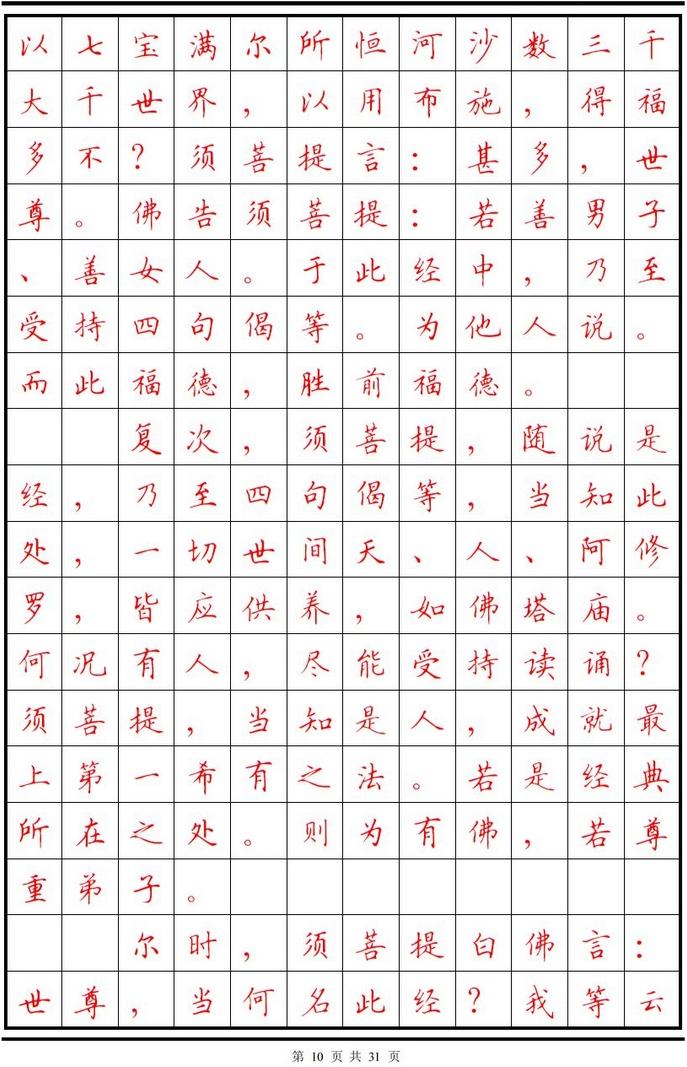 以七宝满尔所恒河沙数三千
大千世界，以用布施，得福
多不？须菩提言：甚多，世
尊。佛告须菩提：若善男子
、善女人。于此经中，乃至
受持四句偈等。为他人说。
而此福德，胜前福德。
复次，须菩提，随说是
经，乃至四句偈等，当知此
处，一切世间天、人、阿修
罗，皆应供养，如佛塔庙。
何况有人，尽能受持读诵？
须菩提，当知是人，成就最
上第一希有之法。若是经典
所在之处。则为有佛，若尊
重弟子。
尔时，须菩提白佛言：
世尊，当何名此经？我等云
第 10 页 共 31 页